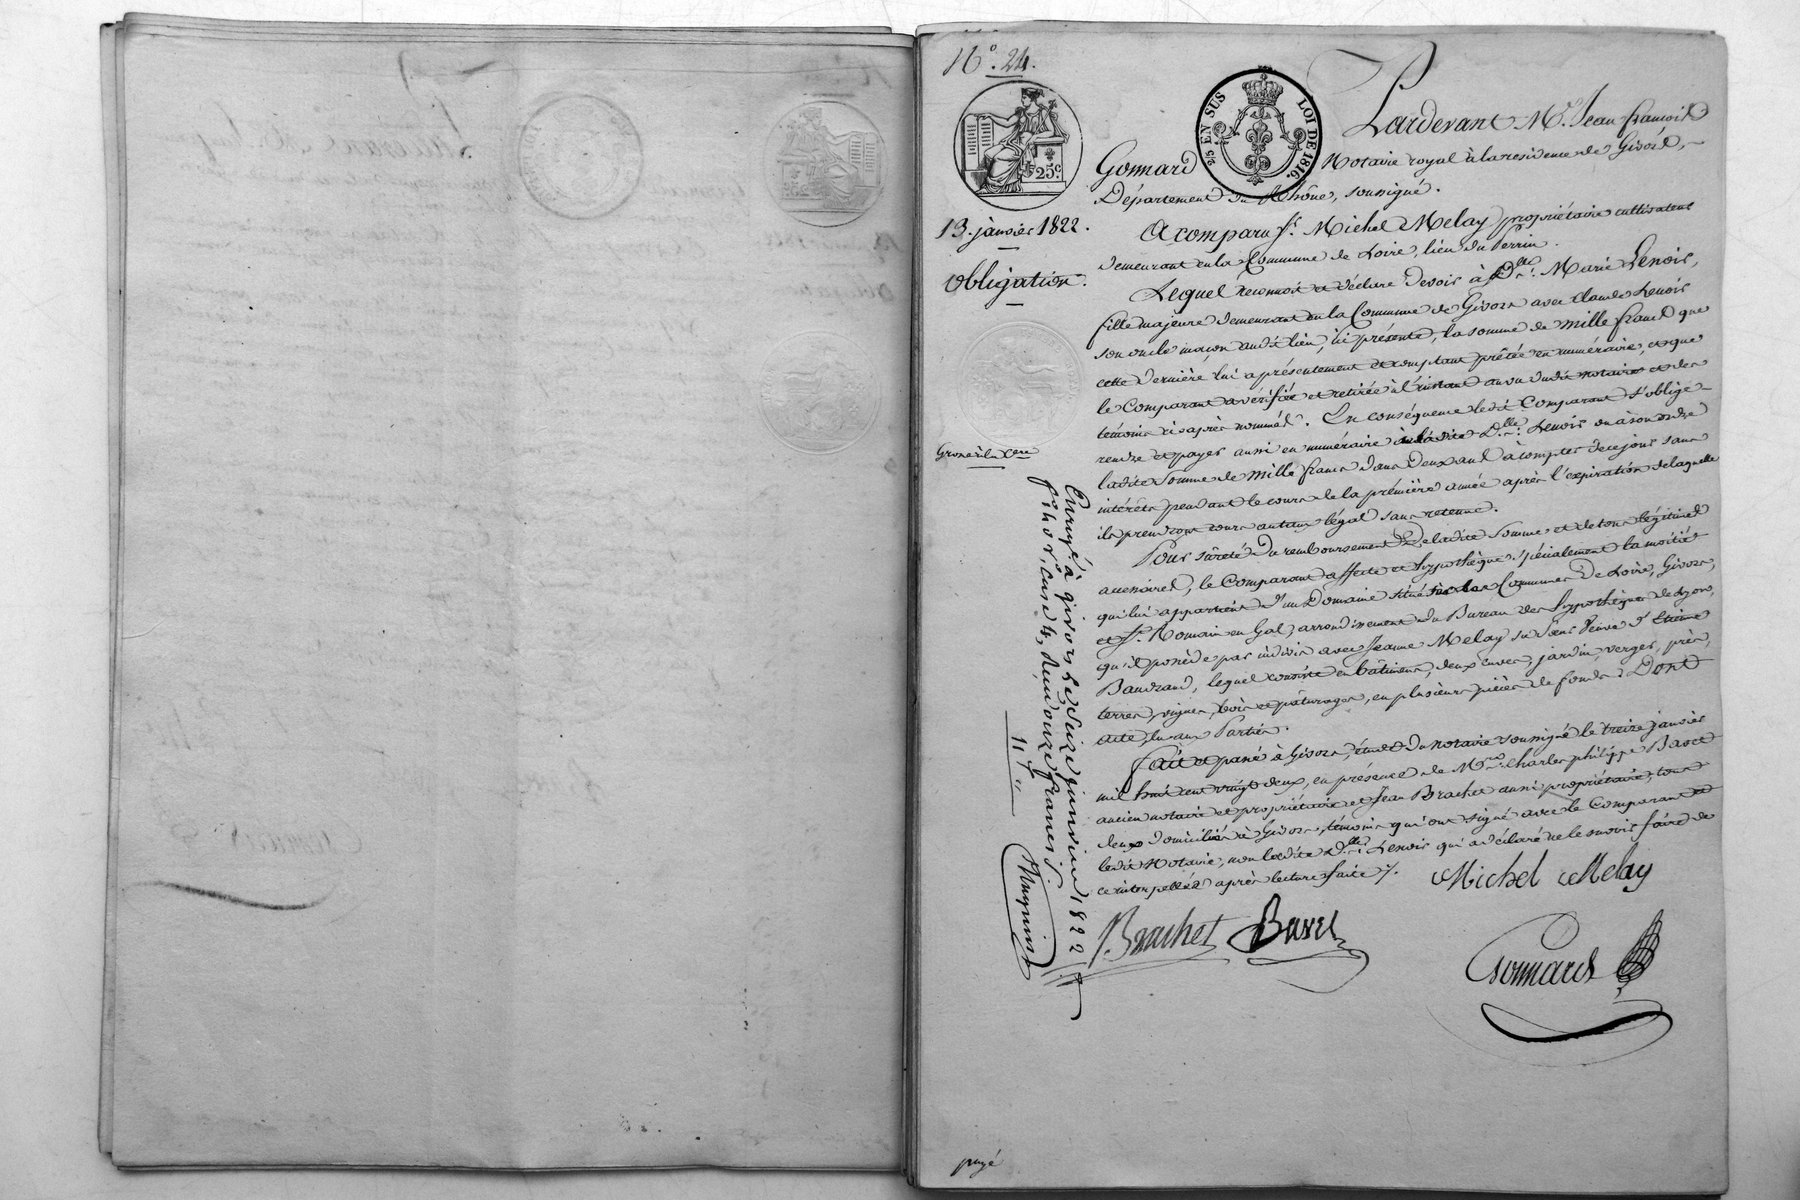 N.º 24.
25c.
2/5 EN SUS LOI DE 1816.
13. janvier 1822.
Obligation.
Pardevant M.e Jean françois
Gonnard Notaire royal à la residence de Givors,
Département du Rhône, soussigné.
A comparu S.r Michel Melay propriétaire cultivateur
demeurant en la Commune de Loire, lieu du Perrin.
Lequel reconnoit et déclare devoir à D.lle Marie Lenoir,
fille majeure demeurant en la Commune de Givors avec Claude Lenoir
son oncle maçon audit lieu, ici présente, la somme de mille francs que
cette dernière lui a présentement et comptant prêtée en numéraire, et que
le Comparant a vérifiée et retirée à l'instant au vu dudit notaire et des
témoins ci après nommés. En conséquence ledit Comparant s'oblige
rendre et payer aussi en numéraire à ladite D.lle Lenoir ou à son ordre
ladite somme de mille francs dans deux ans à compter de ce jour sans
intérêts pendant le cours de la première année après l'expiration de laquelle
ils prendront cours au taux légal sans retenue.
Pour sûreté du remboursement de ladite somme et de tous légitimes
accessoires, le Comparant affecte et hypothèque spécialement la moitié
qui lui appartient d'un Domaine situé sur les Communes de Loire, Givors,
et S.t Romain en Gal, arrondissement du Bureau des hypothèques de Lyon,
qu'il possède par indivis avec Jeanne Melay sa sœur veuve d'Etienne
Baudrand, lequel consiste en bâtiments, deux cuves, jardin, verger, près,
terres, vignes, bois et pâturages, en plusieurs pièces de fonds. Dont
acte, lu aux Parties.
Fait et passé à Givors, étude du notaire soussigné le treize janvier
mil huit cent vingt deux, en présence de M.rs Charles philippe
ancien notaire et propriétaire et Jean Brachet aussi propriétaire, tous
deux domiciliés à Givors, témoins qui ont signé avec le Comparant et
ledit Notaire, non ladite D.lle Lenoir qui a déclaré ne le savoir faire de
ce interpellée après lecture faite.
Michel Melay
Brachet
Gonnard
Enregé à givors le seize janvier 1822
f.º 110 v.º, case 4, reçu onze francs
11 f
payé